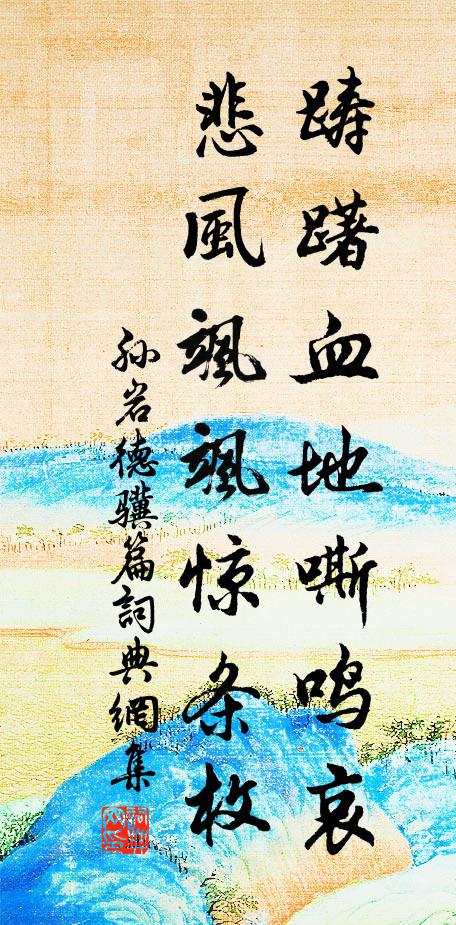 踌躇血地嘶鸣哀
悲風飒飒惊条枚
孙岩德骥篇詞典網集